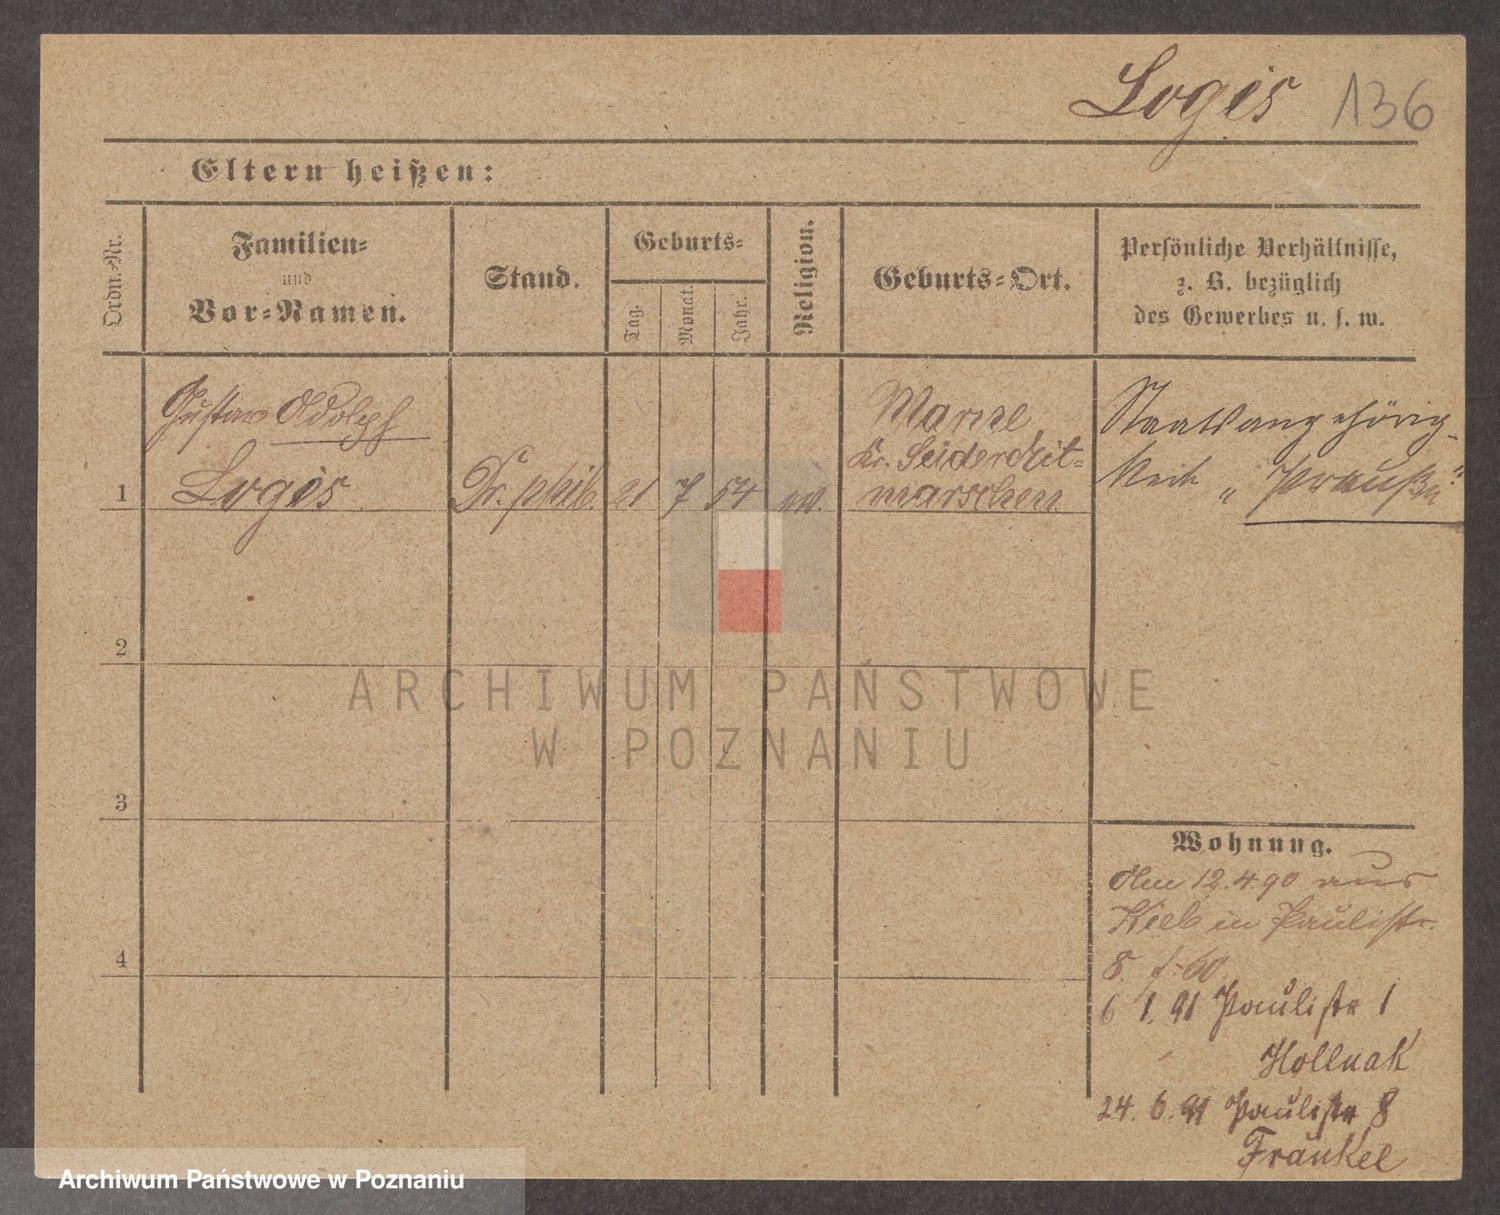 Logis 136
Eltern heißen:
Ordn.-Nr.
Familien-
und
Vor-Namen.
Stand.
Geburts-
Tag.
Monat.
Jahr.
Religion.
Geburts-Ort.
Persönliche Verhältnisse,
z. B. bezüglich
des Gewerbes u. s. w.
Gustav Adolph
Logis
1
Dr. phil. 21 7 54 ev.
Marne
Kr. Süderdit-
marschen
Staatsangehörig-
keit „Preuße"
2
3
4
Wohnung.
12.4.90 aus
Kiel in Paulistr.
8
6 1. 91 Paulistr 1
Hollnak
24. 6. 91 Paulistr 8
Fränkel
ARCHIWUM PAŃSTWOWE
W POZNANIU
Archiwum Państwowe w Poznaniu